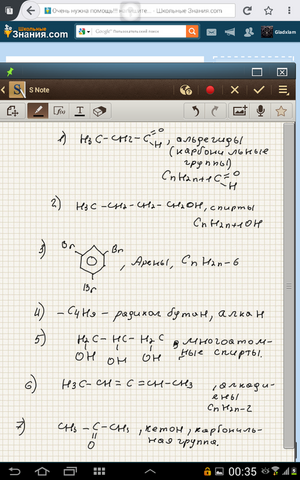 Очень нужна помощь!!!
Школьные Знания.com
Школьные
Знания.com
Google
Gladxiam
S Note
1) H3C-CH2-C=O H, альдегиды
(карбонильные
группы)
CnH2n+1C=O H
2) H3C-CH2-CH2-CH2OH, спирты
CnH2n+1OH
3) Br Br Br, Арены, CnH2n-6
4) -C4H9 - радикал бутан, алкан
5) H2C - HC - H2C многоатом-
OH OH OH ные спирты.
6) H3C-CH=C=CH-CH3, алкади-
ены
CnH2n-2
7) CH3-C-CH3, кетон, карбониль-
O ная группа.
00:35